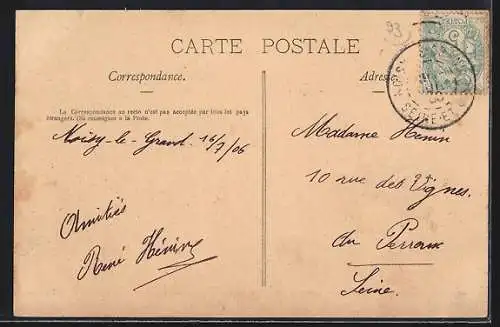 93
CARTE POSTALE
Correspondance.
La Correspondance au recto n'est pas acceptée par tous les pays
étrangers. (Se renseigner à la Poste.)
Noisy-le-Grand. 16/7/06
Amitiés
René Hénin
Madame Henin
10 rue des Vignes.
du Perreux
Seine.